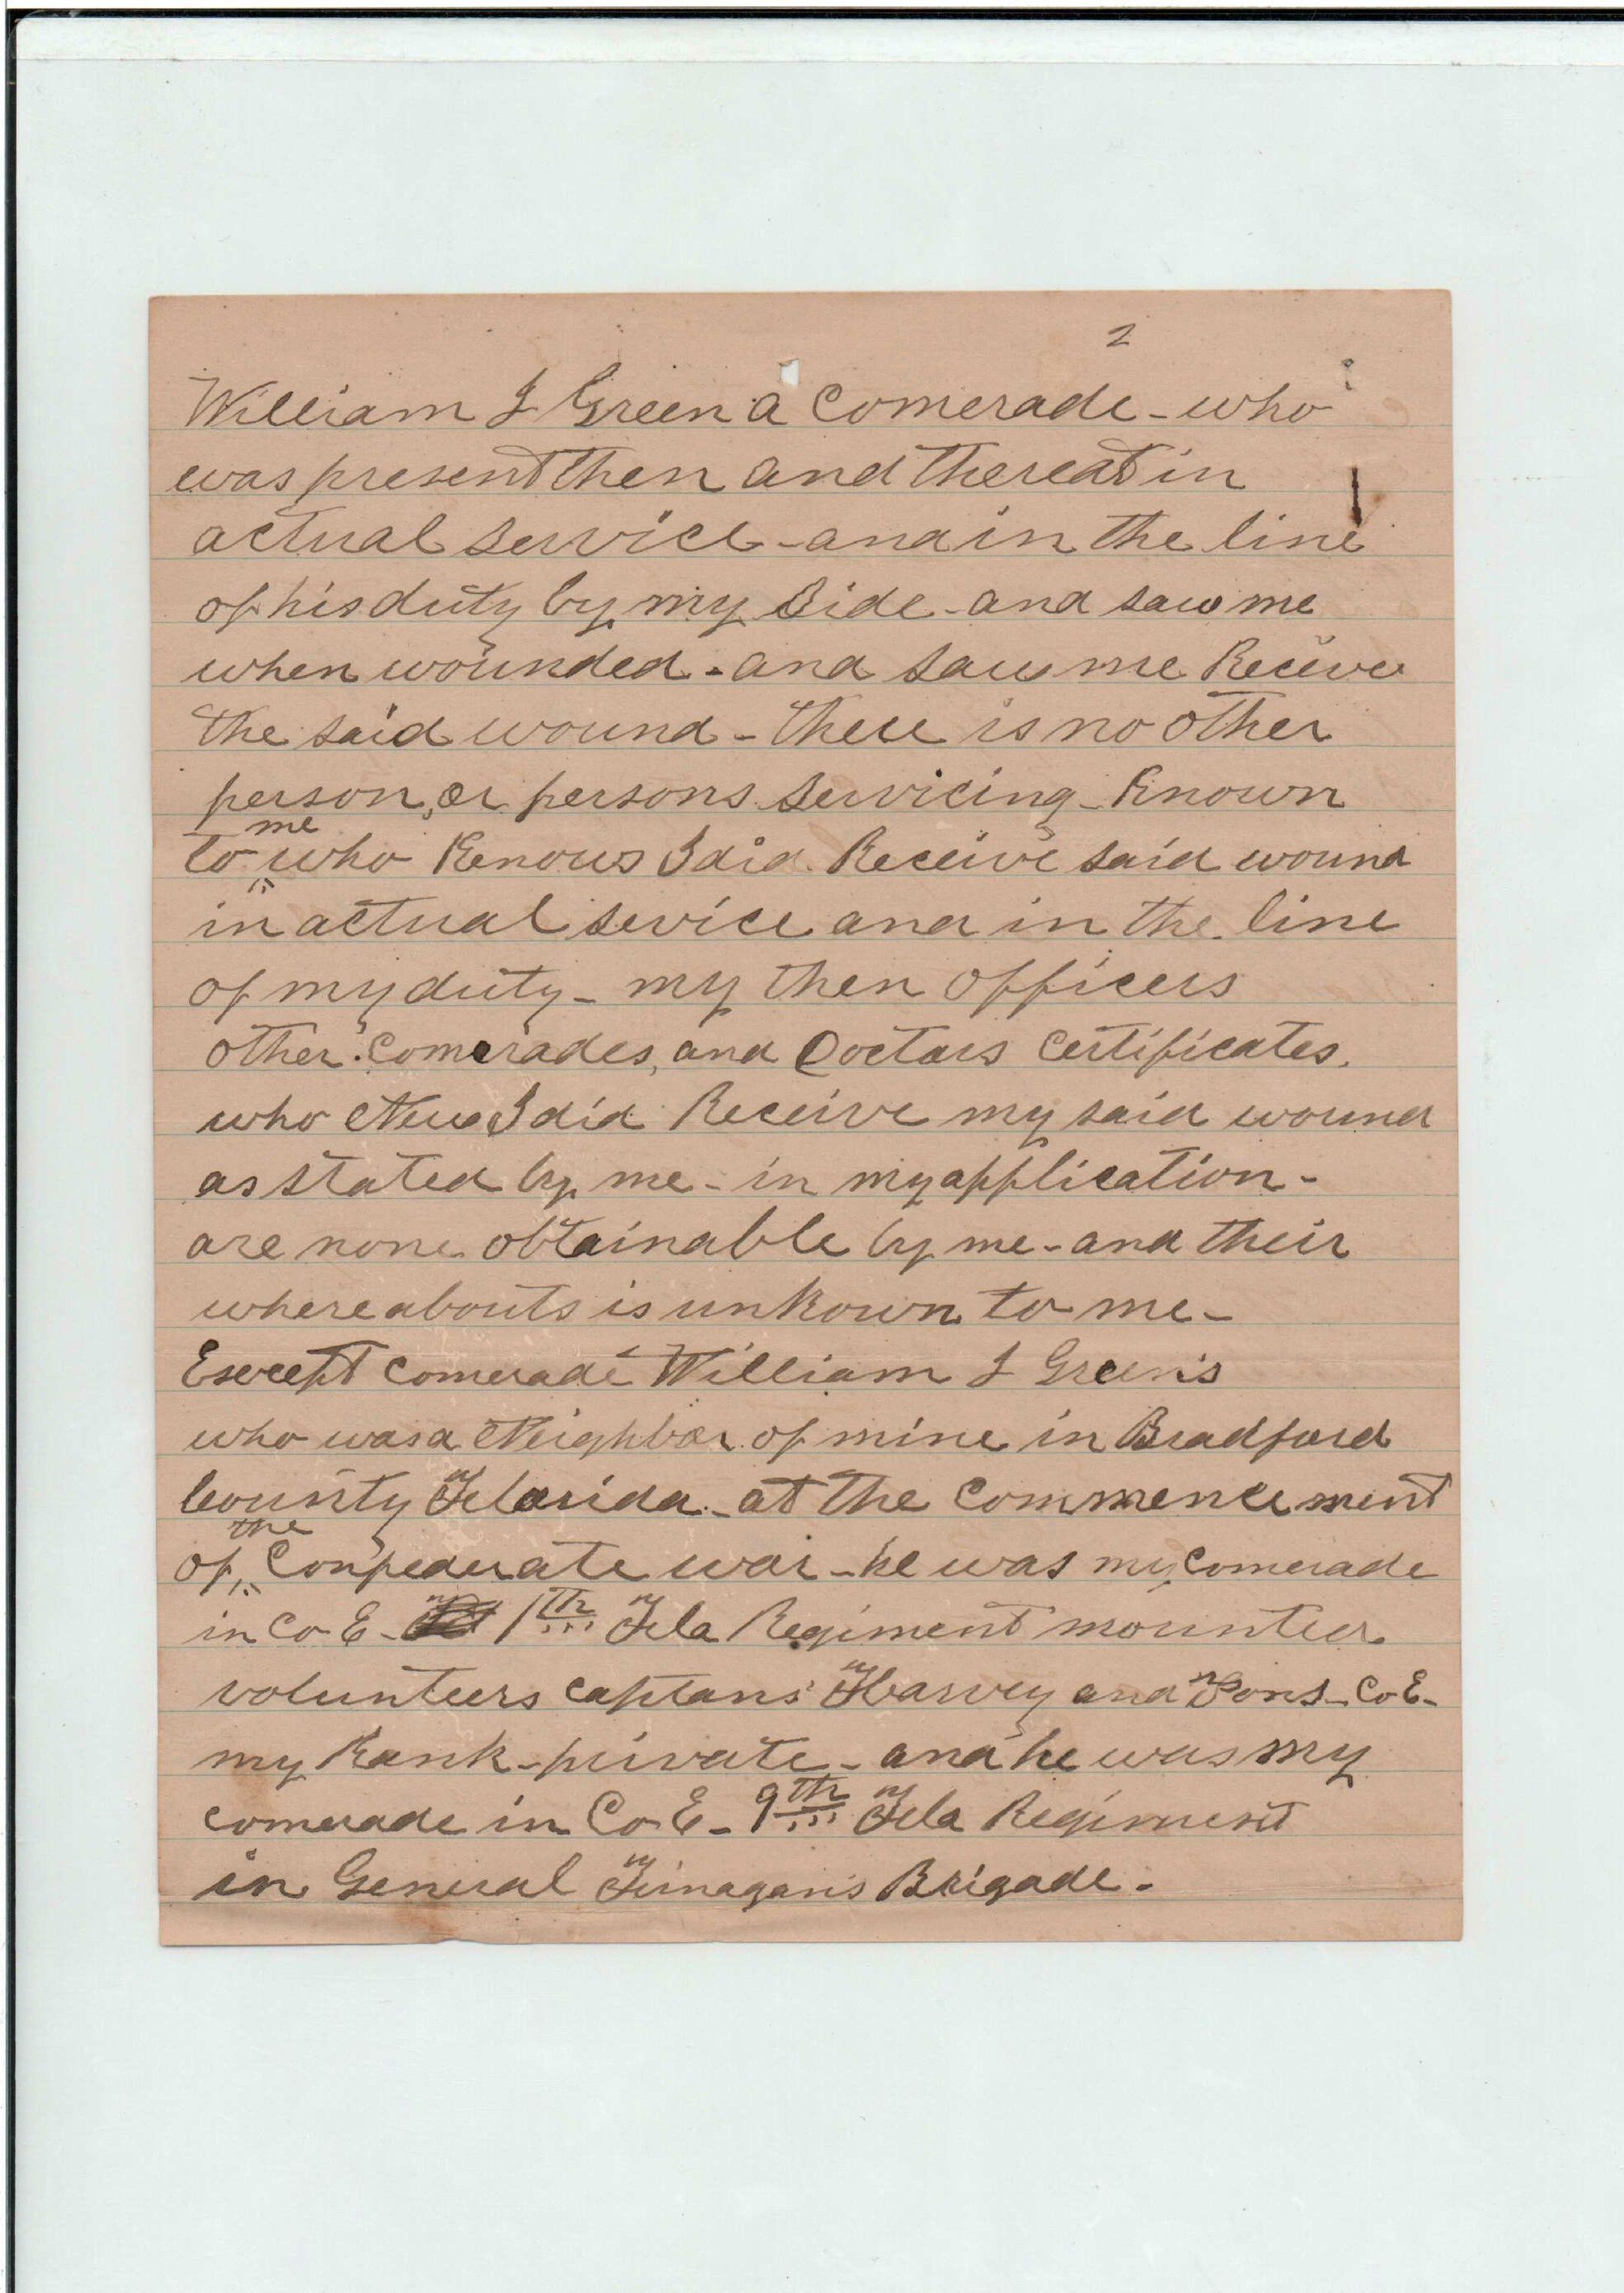 2
William I Green a Comerade - who
was present then and thereat in
actual service - and in the line
of his duty by my side - and saw me
when wounded - and saw me Receive
the said wound - there is no other
person, or persons servicing - Known
me
to who Knows I did Receive said wound
in actual service and in the line
of my duty - my then officers
other Comerades, and Doctors Certificates.
who New I did Receive my said wound
as stated by me - in my application -
are none obtainable by me - and their
whereabouts is unkown to me -
Except Comerade William I Green's
who was a Neighbor of mine in Bradford
County Florida - at the Commencement
the
of Confederate war - he was my Comerade
in Co E - 1th Fla Regiment mounted
volunteers captans Harvey and Co E -
my Rank - private - and he was my
comerade in Co E - 9th Fla Regiment
in General Finagan's Brigade -